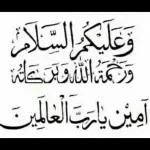 وَعَلَيْكُمُ السَّلَامُ
وَرَحْمَةُ اللهِ وَبَرَكَاتُهُ
آمِيْن يَارَبَّ الْعَالَمِيْن